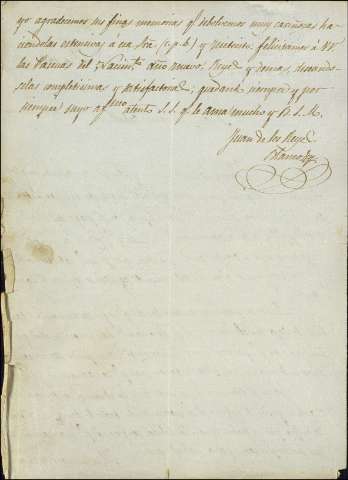 yo agradecemos sus finas memorias q.e debolvemos muy cariñosas ha-
ciendolas estensivas á esa Sra. (c. p. b.) y
las Pascuas del Nacim.to año nuevo, Reyes y demas, deseando-
selas completisimas y satisfactorias; quedando siempre y por
siempre suyo af.mo atento S. S. q.e le ama mucho y B. S. M.
Juan de los Reyes